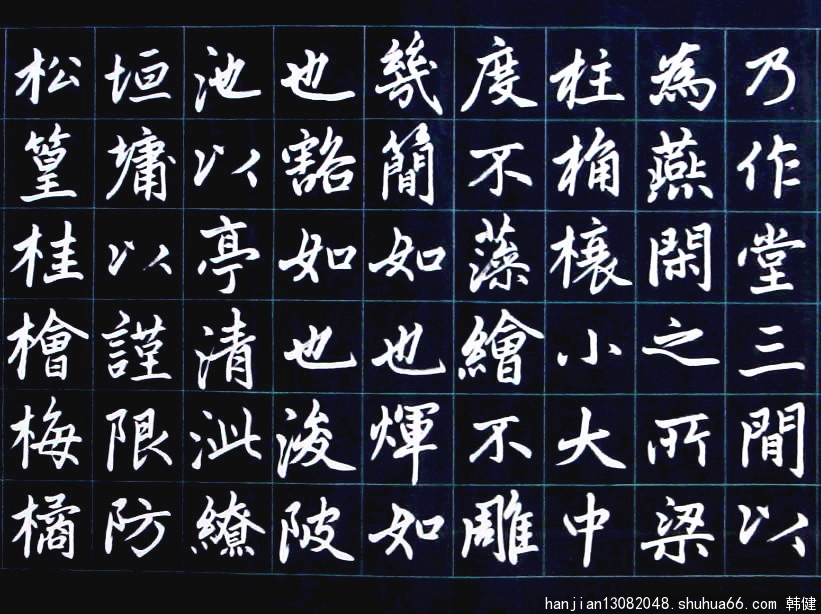 乃作堂三間以
為燕閑之所梁
柱桷榱小大中
度不藻繪不雕
幾簡如也煇如
也豁如也浚陂
池以亭清泚繚
垣墉以謹限防
松篁桂檜梅橘
hanjian13082048.shuhua66.com 韩健